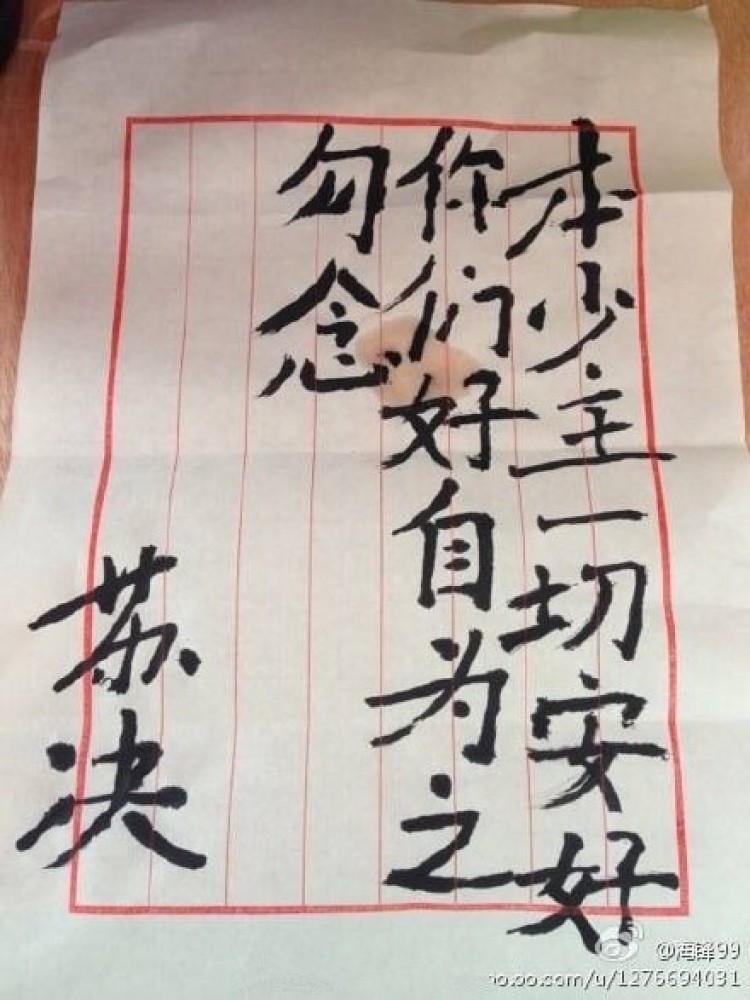 本少主一切安好
你们好自为之
勿念
苏决
@海锋99
oo.oo.com/u/1275694031